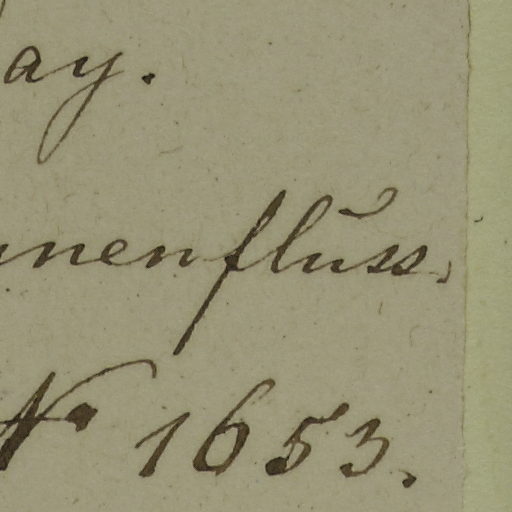 ay.
nenfluss.
No 1653.